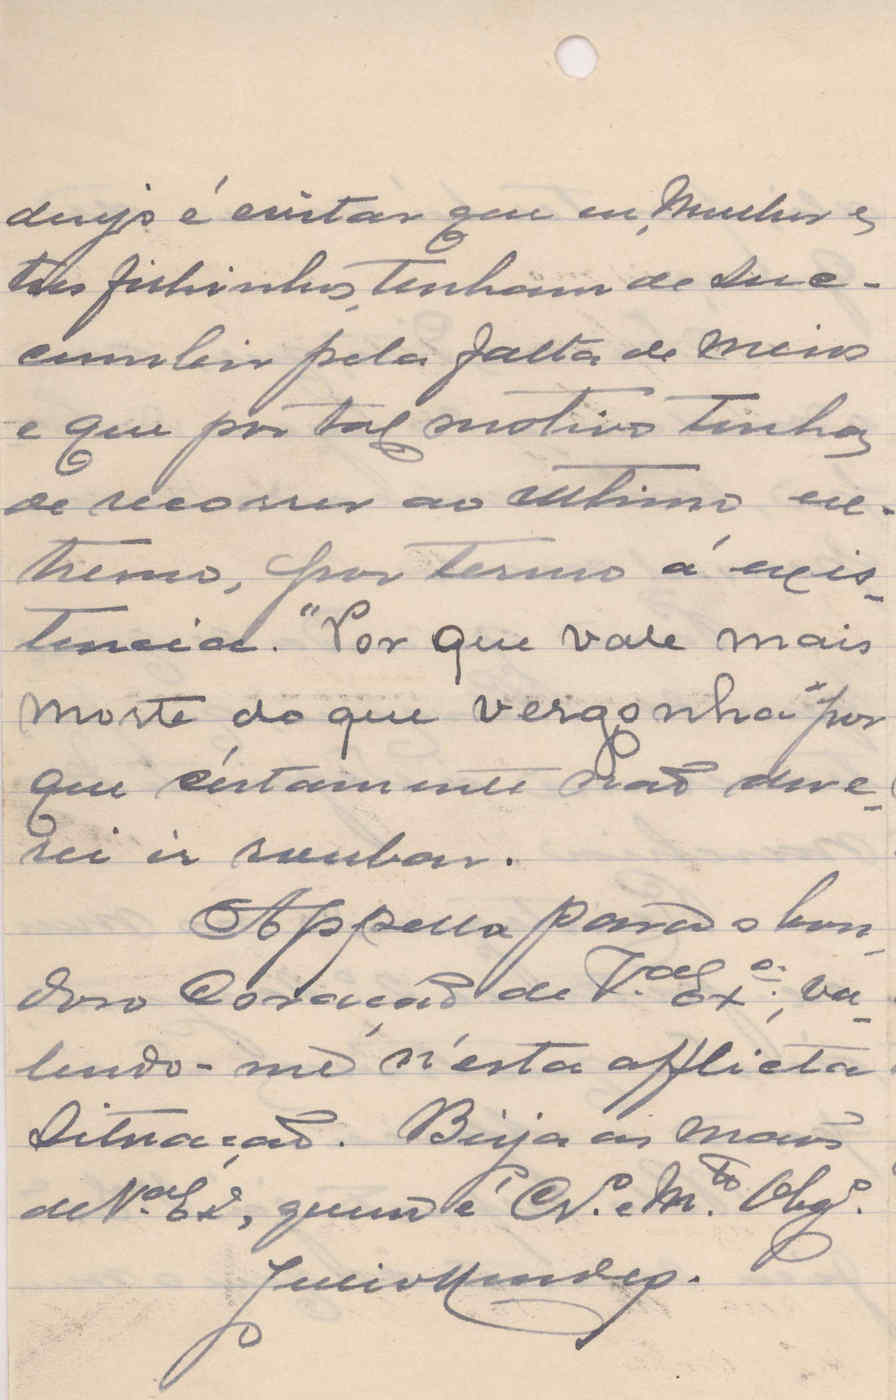 desejo é evitar que eu, Mulher e
tres filhinhos, tenham de suc-
cumbir pela falta de meios
e que por tal motivo tenha
de recorrer ao ultimo ex-
tremo, por termo á exis-
tencia. "Por que vale mais
morte do que vergonha" por
que cértamente não deve-
rei ir roubar.
Appello para o bon-
doso Coração de V.ª Ex.ª, va-
lendo-me n'esta afflicta
Situação. Beija as mãos
de V.ª Ex.ª, quem é Cr.º e M.to Obg.º.
Julio Mendes.